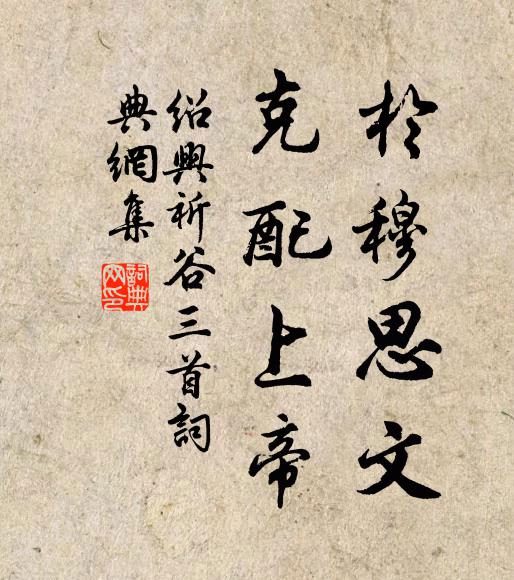 於穆思文
克配上帝
紹興祈谷三首詞
典網集
詞典網印